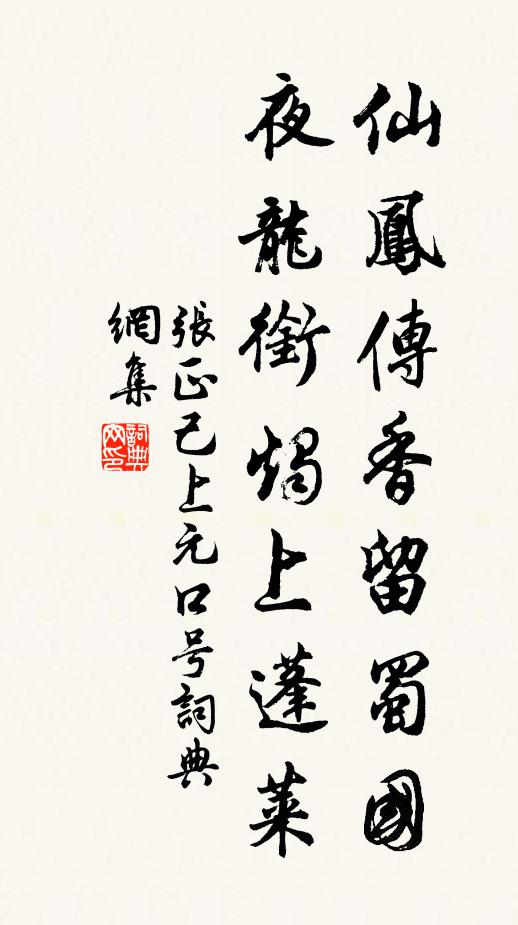 仙鳳傳香留蜀國
夜龍銜燭上蓬萊
張正己上元口号詞典
網集
詞典
网印